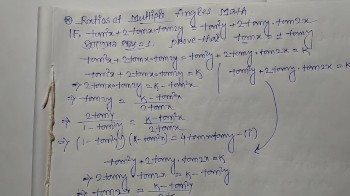 Ratios of Multiple Angles Math
IF, tan²x + 2tanx·tan2y = tan²y + 2tany·tan2x
prove that tanx = ± tany
tan²x + 2tanx·tan2y = tan²y + 2tany·tan2x = K
tan²x + 2tanx·tan2y = K
tan²y + 2tany·tan2x = K
⇒ 2tanx·tan2y = K - tan²x
⇒ tan2y = K - tan²x / 2tanx
⇒ 2tany / 1 - tan²y = K - tan²x / 2tanx
⇒ (1 - tan²y)(K - tan²x) = 4tanx·tany - (i)
tan²y + 2tany·tan2x = K
⇒ 2tany·tan2x = K - tan²y
⇒ tan2x = K - tan²y